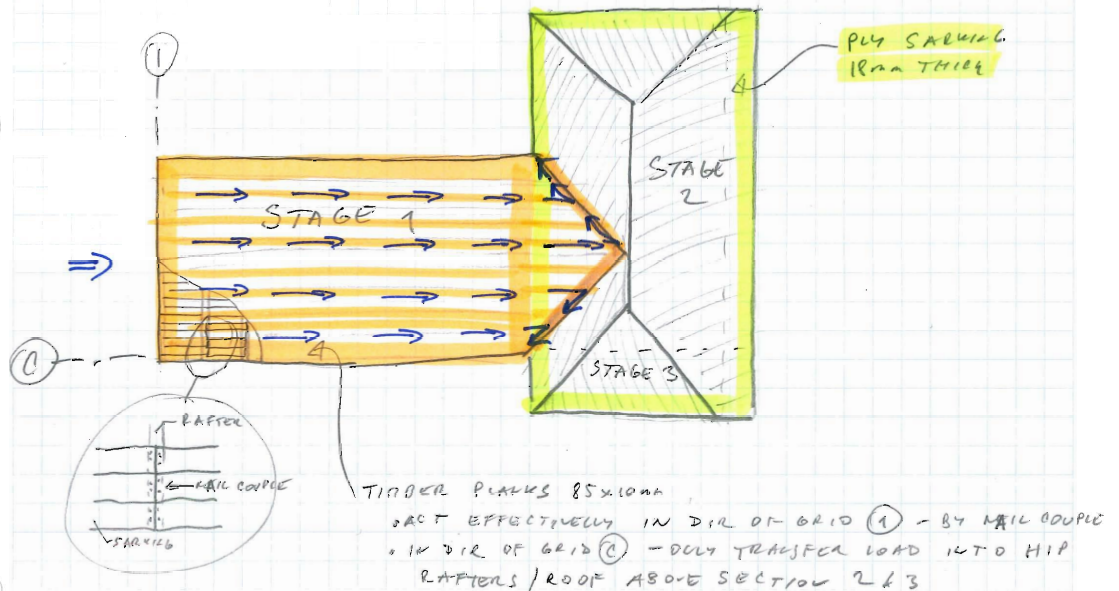 1
PLY SARKING
18mm THICK
STAGE 1
STAGE
2
STAGE 3
C
RAFTER
NAIL COUPLE
SARKING
TIMBER PLANKS 85x10mm
• ACT EFFECTIVELY IN DIR OF GRID 1 - BY NAIL COUPLE
• IN DIR OF GRID C - ONLY TRANSFER LOAD INTO HIP
RAFTERS / ROOF ABOVE SECTION 2 & 3